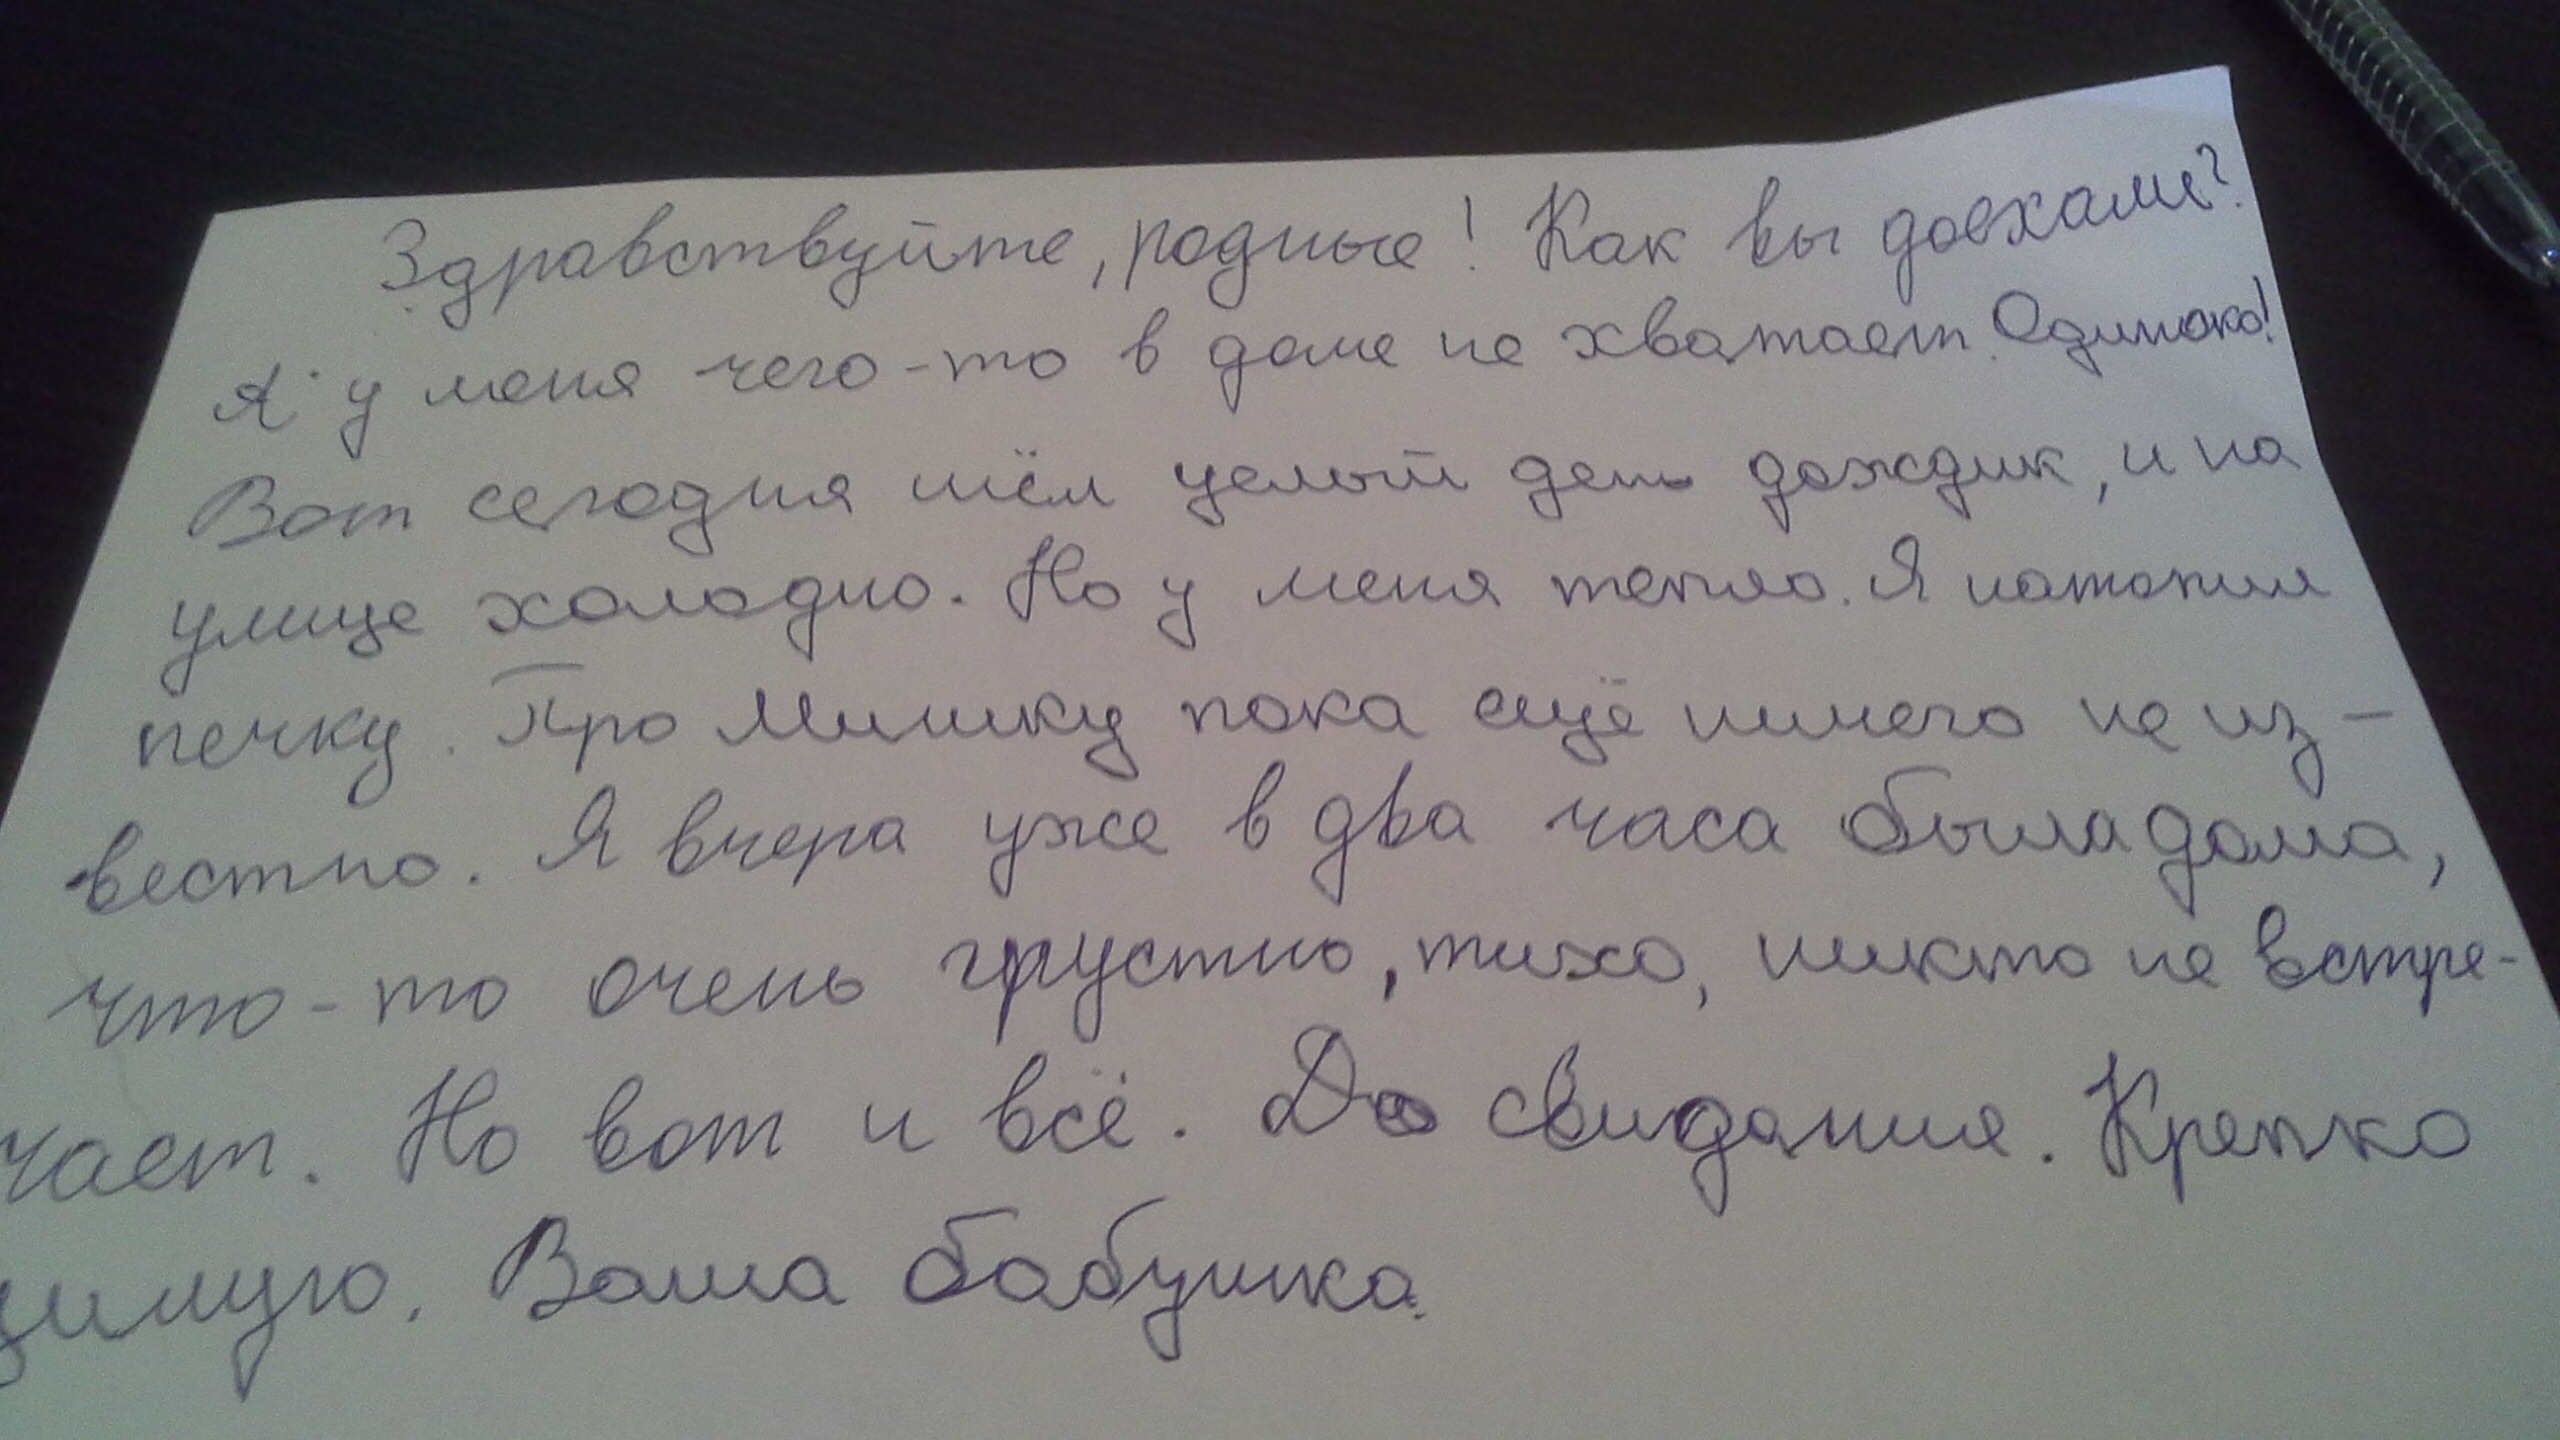 Здравствуйте, родные! Как вы доехали?
А у меня чего-то в доме не хватает. Одиноко!
Вот сегодня шёл целый день дождик, и на
улице холодно. Но у меня тепло. Я натопил
печку. Про Мишку пока ещё ничего не из-
вестно. Я вчера уже в два часа была дома,
что-то очень грустно, тихо, никто не встре-
чает. Но вот и всё. До свидания. Крепко
цимую. Ваша бабушка.